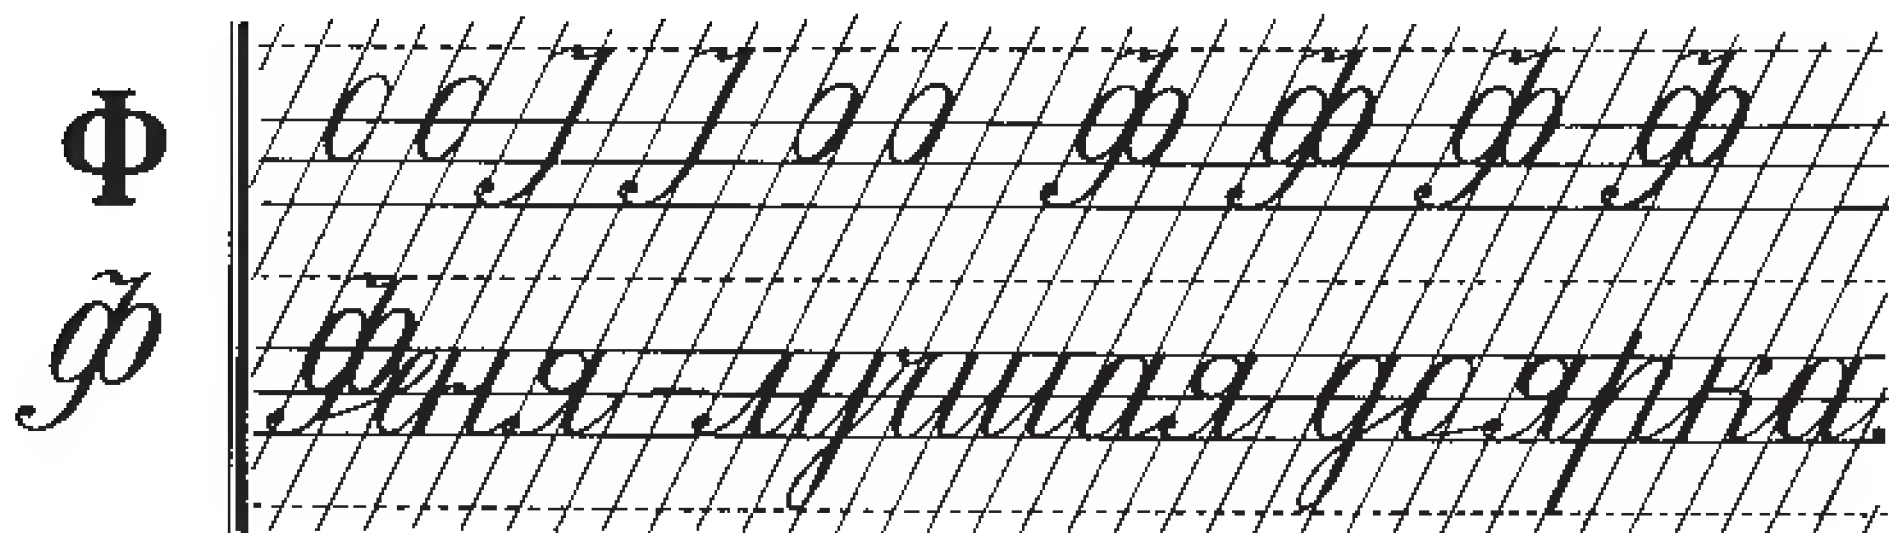 Ф
Ф Ф Ф Ф
Ф
Феня - лучшая доярка.